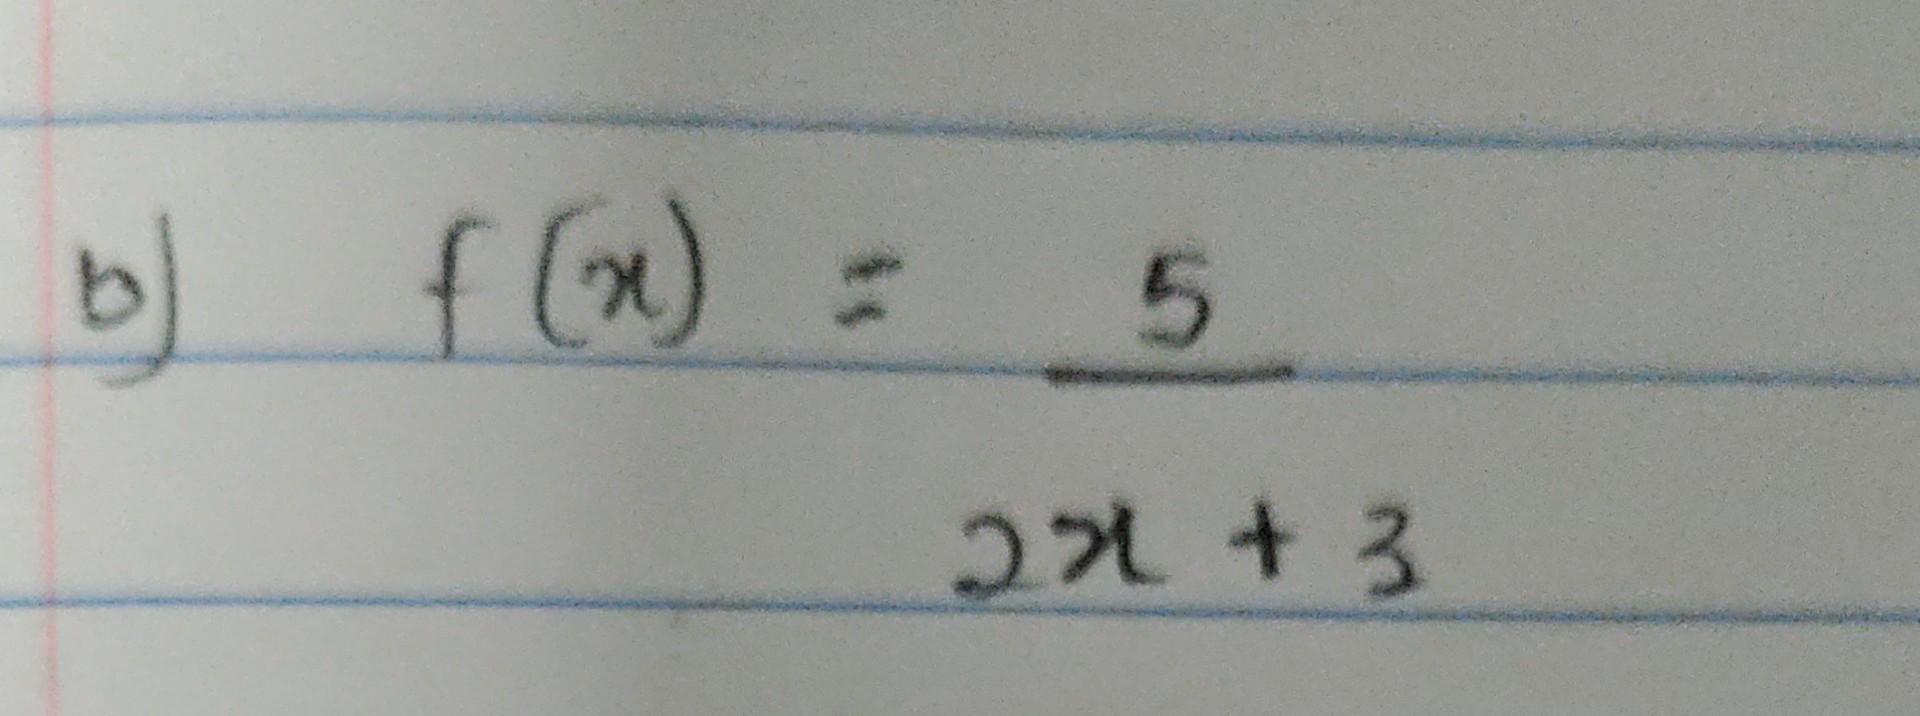 b) f(x) = 5
2x + 3